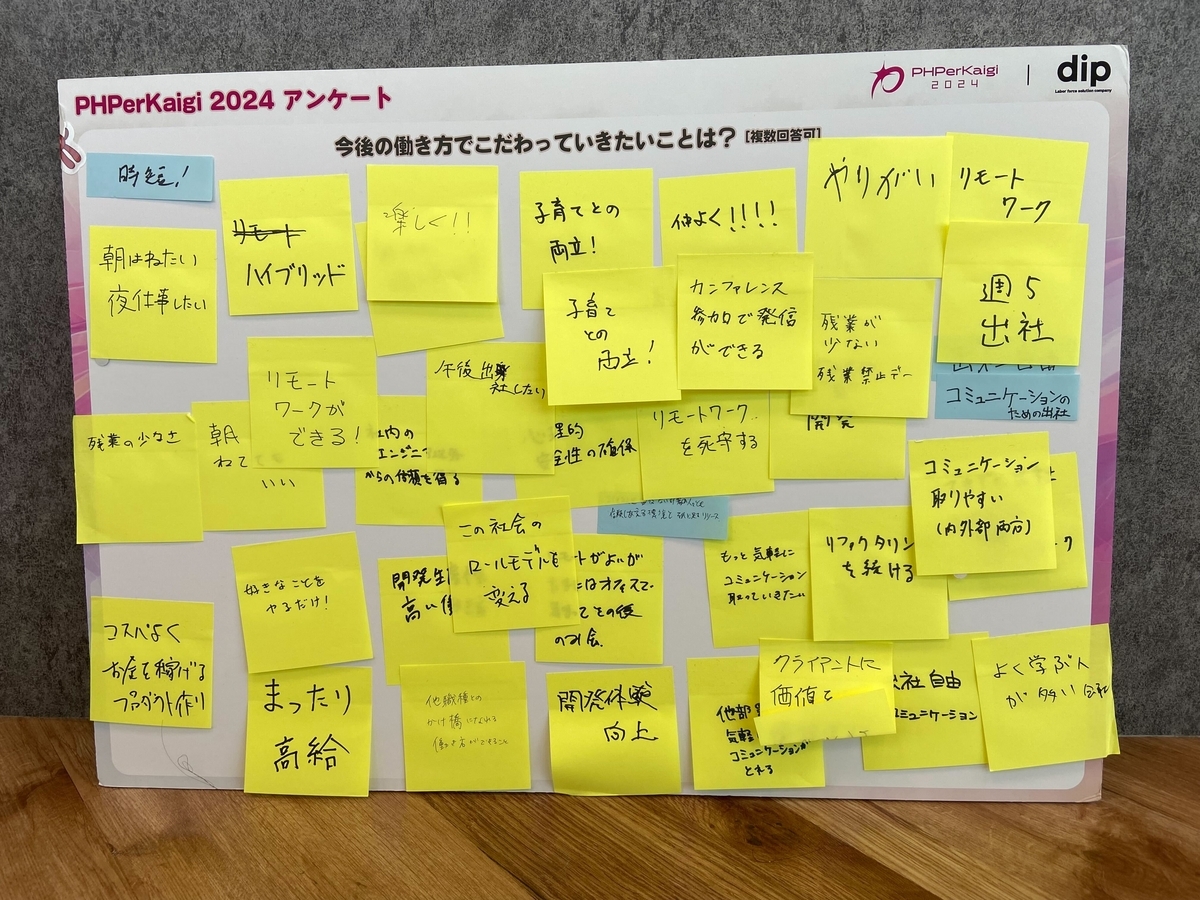 PHPerKaigi 2024 アンケート
PHPerKaigi
2024
dip
Labor force solution company
今後の働き方でこだわっていきたいことは？ [複数回答可]
時短!
朝はねたい
夜仕事したい
リモート
ハイブリッド
楽しく!!
子育てとの
両立!
仲よく!!!!
やりがい
リモート
ワーク
子育て
との
両立!
カンファレンス
参加で発信
ができる
残業が
少ない
残業禁止デー
週5
出社
コミュニケーションの
ための出社
リモート
ワークが
できる!
午後出
社したい
残業の少なさ
朝
ねて
いい
内の
エンジニ
からの信頼を得る
理的
全性の確保
リモートワーク
を死守する
開発
コミュニケーション
取りやすい
(内外部両方)
ク
好きなことを
やるだけ!
開発生
高い
この社会の
ロールモデルを
変える
トがよいが
はオフィスで
てその後
のみ会.
もっと気軽に
コミュニケーション
取っていきたい
リファクタリン
を続ける
コスパよく
お金を稼げる
プロダクト作り
まったり
高給
他職種との
かけ橋になれる
働き方ができること
開発体験
向上
他部
気軽
コミュニケーションが
とれる
クライアントに
価値を
社自由
コミュニケーション
よく学ぶ人
が多い会社